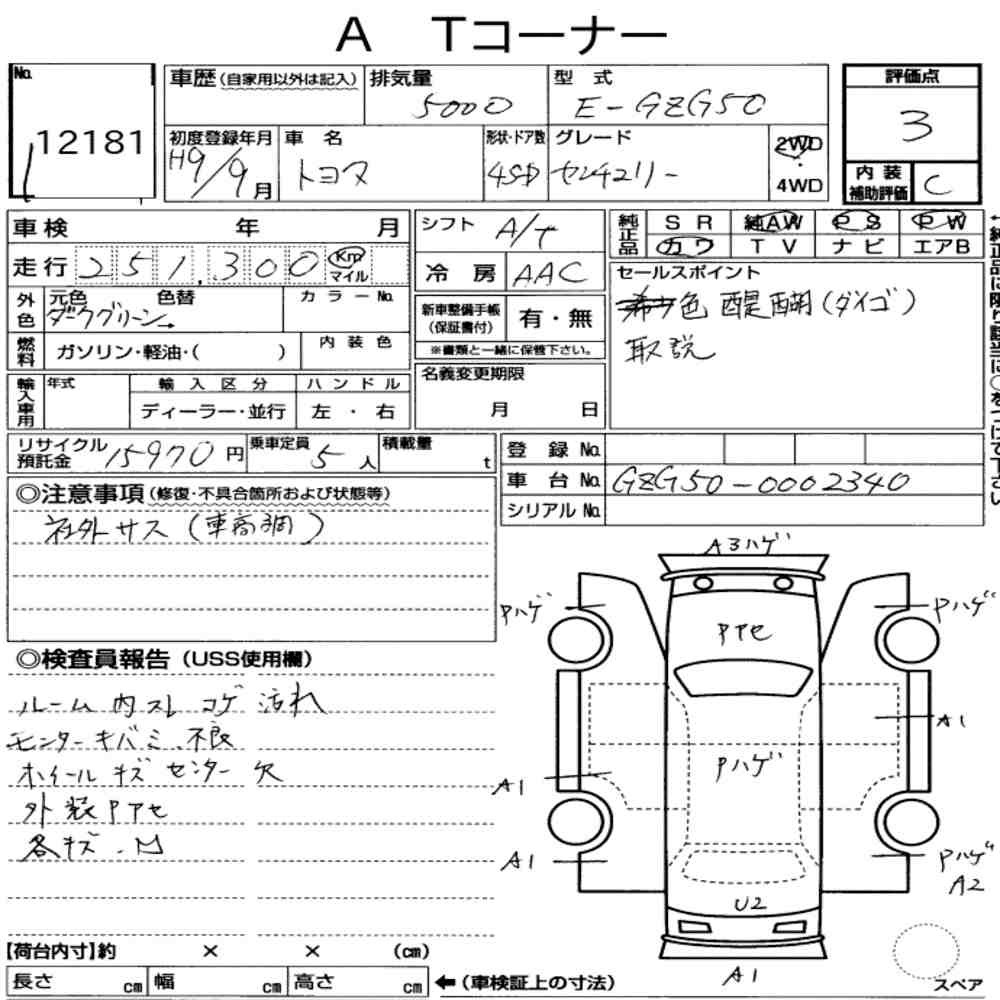 A Tコーナー
No.
12181
車歴(自家用以外は記入)
排気量
5000
型式
E-GZG50
評価点
3
初度登録年月
H9/9月
車名
トヨタ
形状・ドア数
4SD
グレード
センチュリー
2WD
・
4WD
内装
補助評価
C
車検 年 月
走行 251,300 Km マイル
シフト
A/T
冷房
AAC
純正品
SR 純AW PS PW
カワ TV ナビ エアB
外色
元色 色替
ダークグリーン→
カラーNo.
燃料
ガソリン・軽油・( )
内装色
新車整備手帳
(保証書付)
有・無
※書類と一緒に保管下さい。
セールスポイント
色 醍醐(ダイゴ)
取説
←純正品に限り該当に○をつけて下さい
輸入車用
年式
輸入区分
ディーラー・並行
ハンドル
左・右
名義変更期限
月 日
リサイクル
預託金
15970円
乗車定員
5人
積載量
t
登録No.
車台No.
GZG50-0002340
シリアルNo.
◎注意事項(修復・不具合箇所および状態等)
社外サス(車高調)
◎検査員報告(USS使用欄)
ルーム内スレ コゲ 汚れ
モンターキバミ.不良
ホイールキズ センター欠
外装Pアセ
各キズ.M
A3ハゲ
Pハゲ
Pハゲ
Pアセ
A1
Pハゲ
A1
A1
Pハゲ
A2
U2
A1
スペア
【荷台内寸】約 × × (cm)
長さ cm 幅 cm 高さ cm
←(車検証上の寸法)